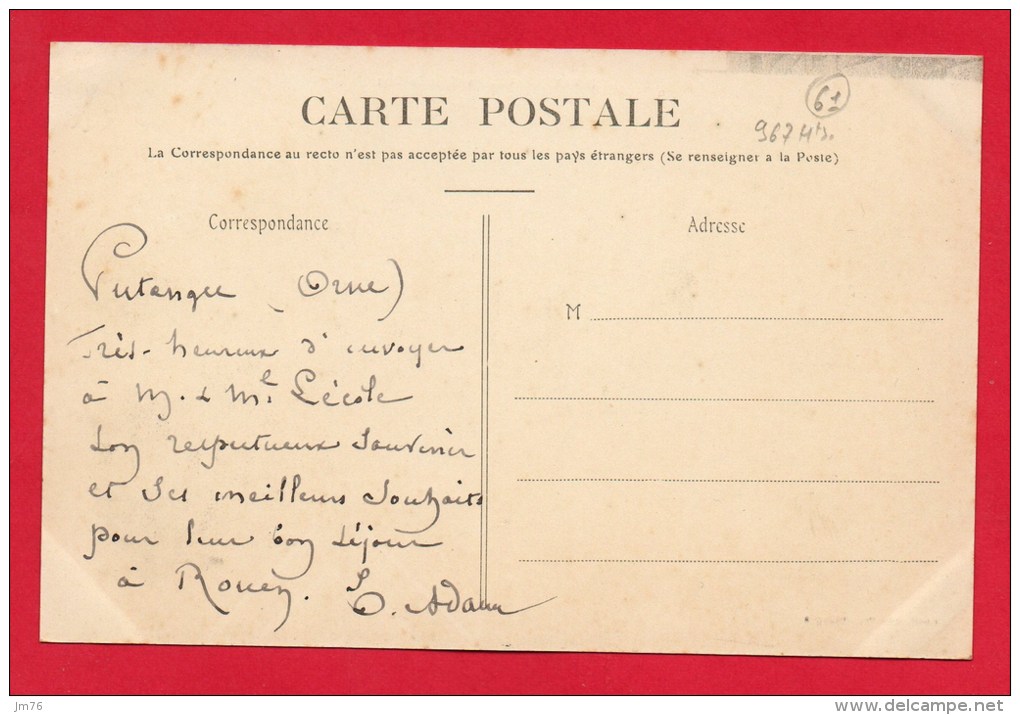 CARTE POSTALE
61
967 Hts.
La Correspondance au recto n'est pas acceptée par tous les pays étrangers (Se renseigner a la Poste)
Correspondance
Putanges (Orne)
Très-heureux d'envoyer
à M. & Me Lécole
son respectueux souvenir
et ses meilleurs souhaits
pour leur bon séjour
à Rouen. O. Adam
Adresse
M
jm76
www.delcampe.net